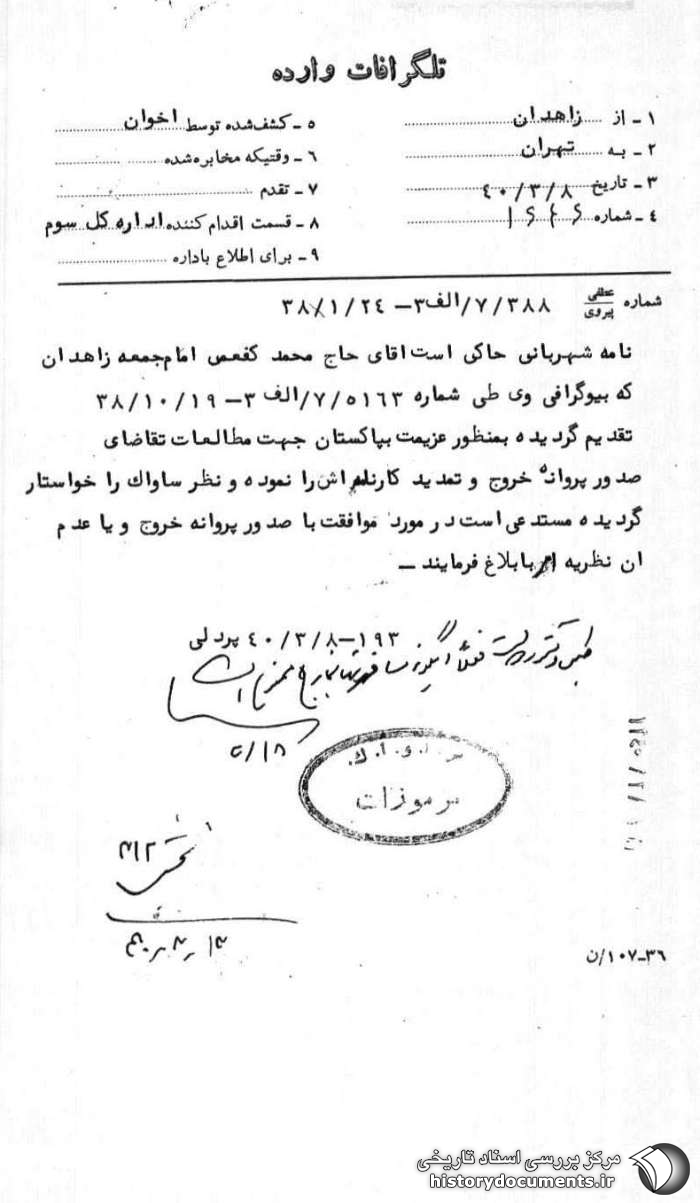 تلگرافات وارده
۱ - از زاهدان
۲ - به تهران
۳ - تاریخ ۴۰/۳/۸
۴ - شماره
۵ - کشف شده توسط اخوان
۶ - وقتیکه مخابره شده
۷ - تقدم
۸ - قسمت اقدام کننده اداره کل سوم
۹ - برای اطلاع باداره
شماره عطفی پیروی ۷/۳۸۸/الف۳ - ۳۸/۱/۲۴
نامه شهربانی حاکی است اقای حاج محمد کفعمی امام جمعه زاهدان
که بیوگرافی وی طی شماره ۷/۵۱۶۳/الف ۳ - ۳۸/۱۰/۱۹
تقدیم گردیده بمنظور عزیمت بپاکستان جهت مطالعات تقاضای
صدور پروانه خروج و تمدید را نموده و نظر ساواك را خواستار
گردیده مستدعی است در مورد موافقت با صدور پروانه خروج و یا عدم
ان نظریه ابلاغ فرمایند -
۱۹۳-۴۰/۳/۸ پردلی
س.ا.و.ا.ك.
مرموزات
۳۶-۱۰۷/ن
مرکز بررسی اسناد تاریخی
historydocuments.ir